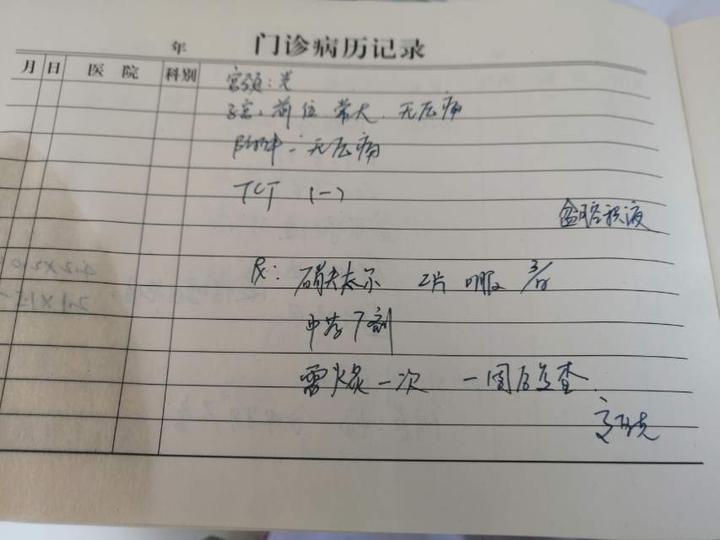 年 门诊病历记录
月 日 医 院 科别
宫颈:光
子宫:前位 常大 无压痛
附件:无压痛
TCT (一)
盆腔积液
Rx: 硝夫太尔 2片 口服 3/日
中药7剂
雷火灸一次 一周后复查.